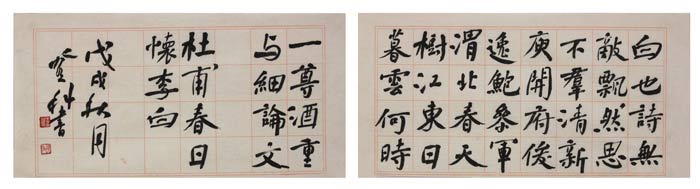 白也詩無
敵飄然思
不羣清新
庾開府俊
逸鮑參軍
渭北春天
樹江東日
暮雲何時
一尊酒重
与細論文
杜甫春日
懷李白
戊戌秋月
登科書